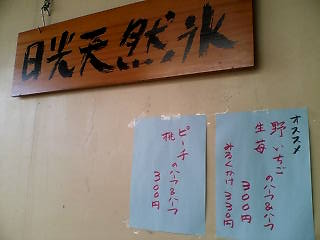 日光天然氷
オススメ
野いちご
生苺
のハーフ&ハーフ
300円
みるくかけ 330円
ピーチ
桃
のハーフ&ハーフ
300円